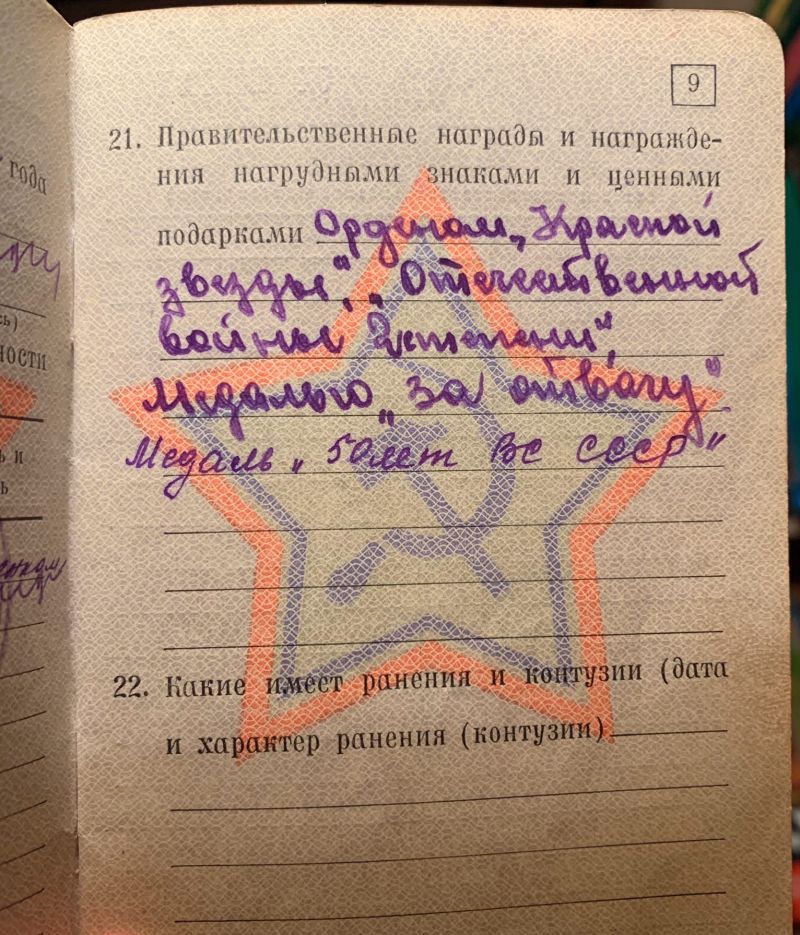 9
21. Правительственные награды и награжде-
ния нагрудными знаками и ценными
подарками Орденом „Красной
звезды“, „Отечественной
войны 2 степени“,
Медалью „за отвагу“
Медаль „50 лет ВС СССР“
22. Какие имеет ранения и контузии (дата
и характер ранения (контузии)
года